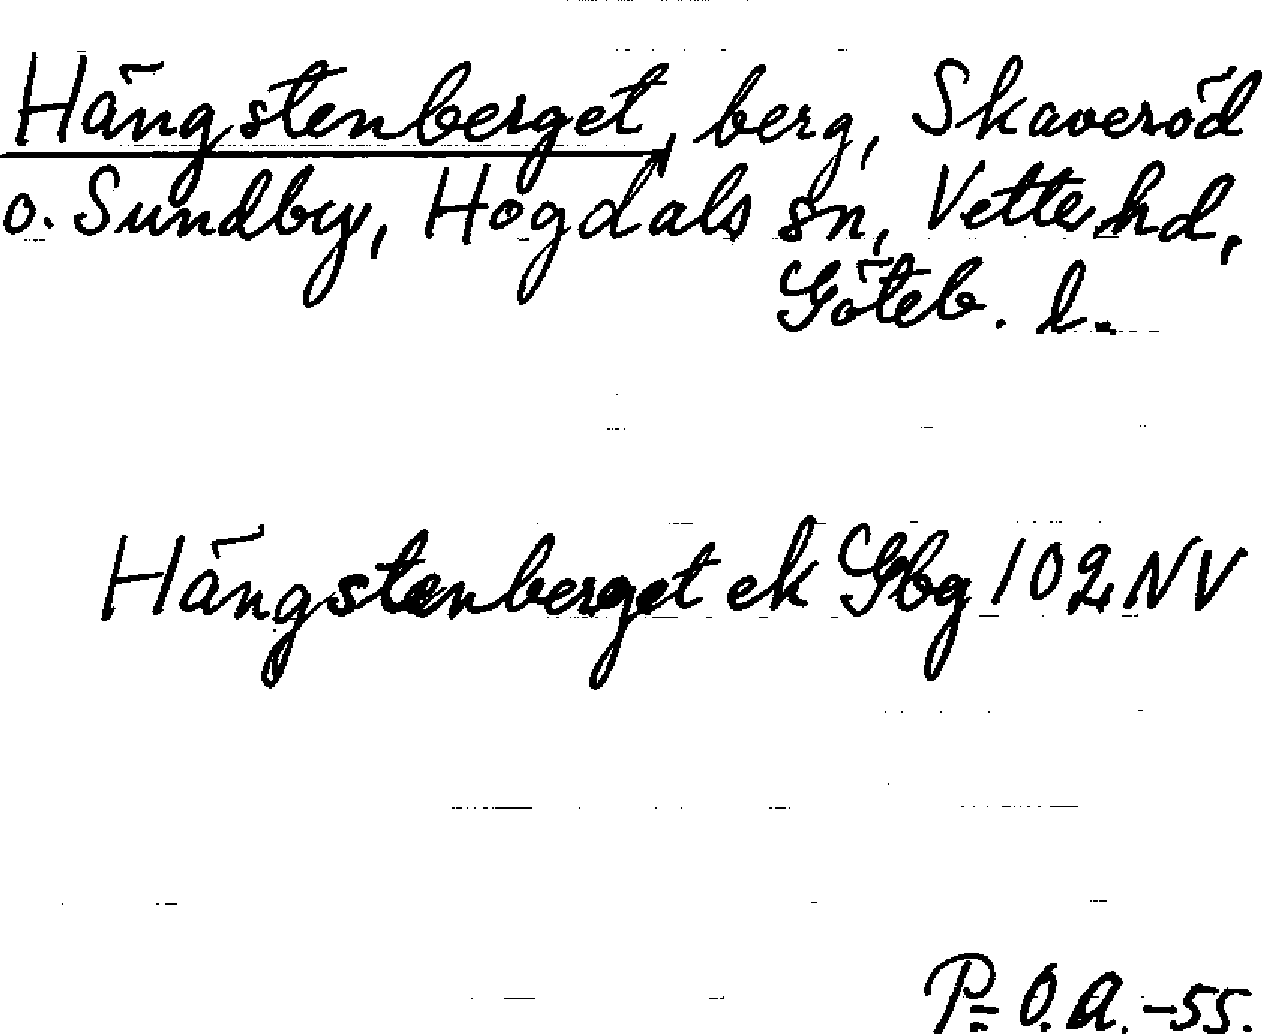 Hängstenberget, berg, Skaveröd
o. Sundby, Hogdals sn, Vette hd,
Göteb. l.
Hängstenberget ek Gbg 102 NV
P-O.A. -55.